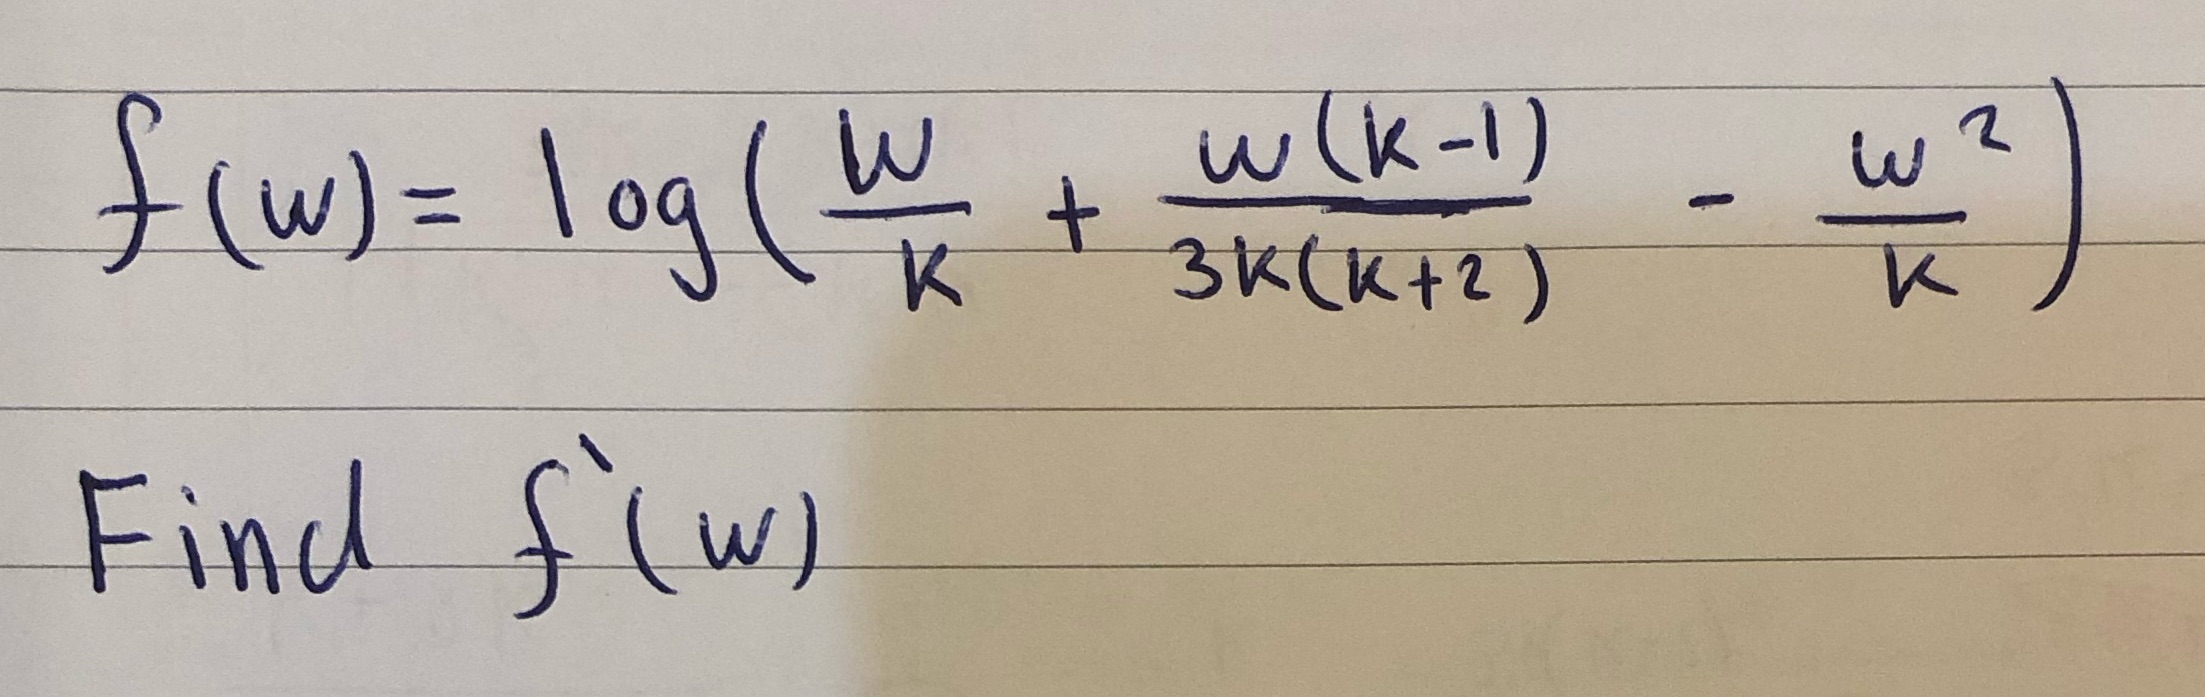 f(w) = log( w/k + w(k-1)/3k(k+2) - w²/k )
Find f`(w)